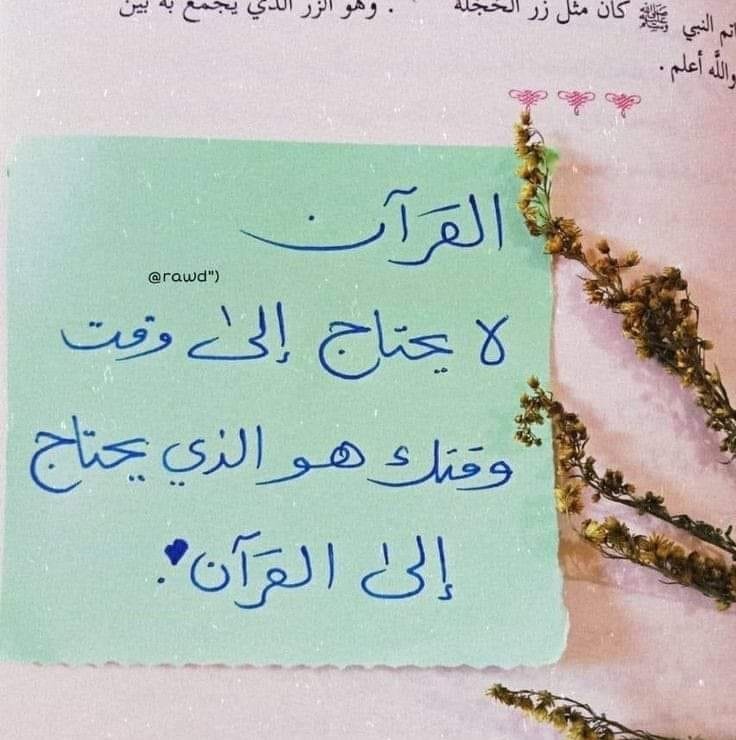 اتم النبي ﷺ كان مثل زر الحجلة . وهو الزر الذي يجمع به بين
والله أعلم .
القرآن
@rawd")
لا يحتاج إلىٰ وقت
وقتك هو الذي يحتاج
إلىٰ القرآن .